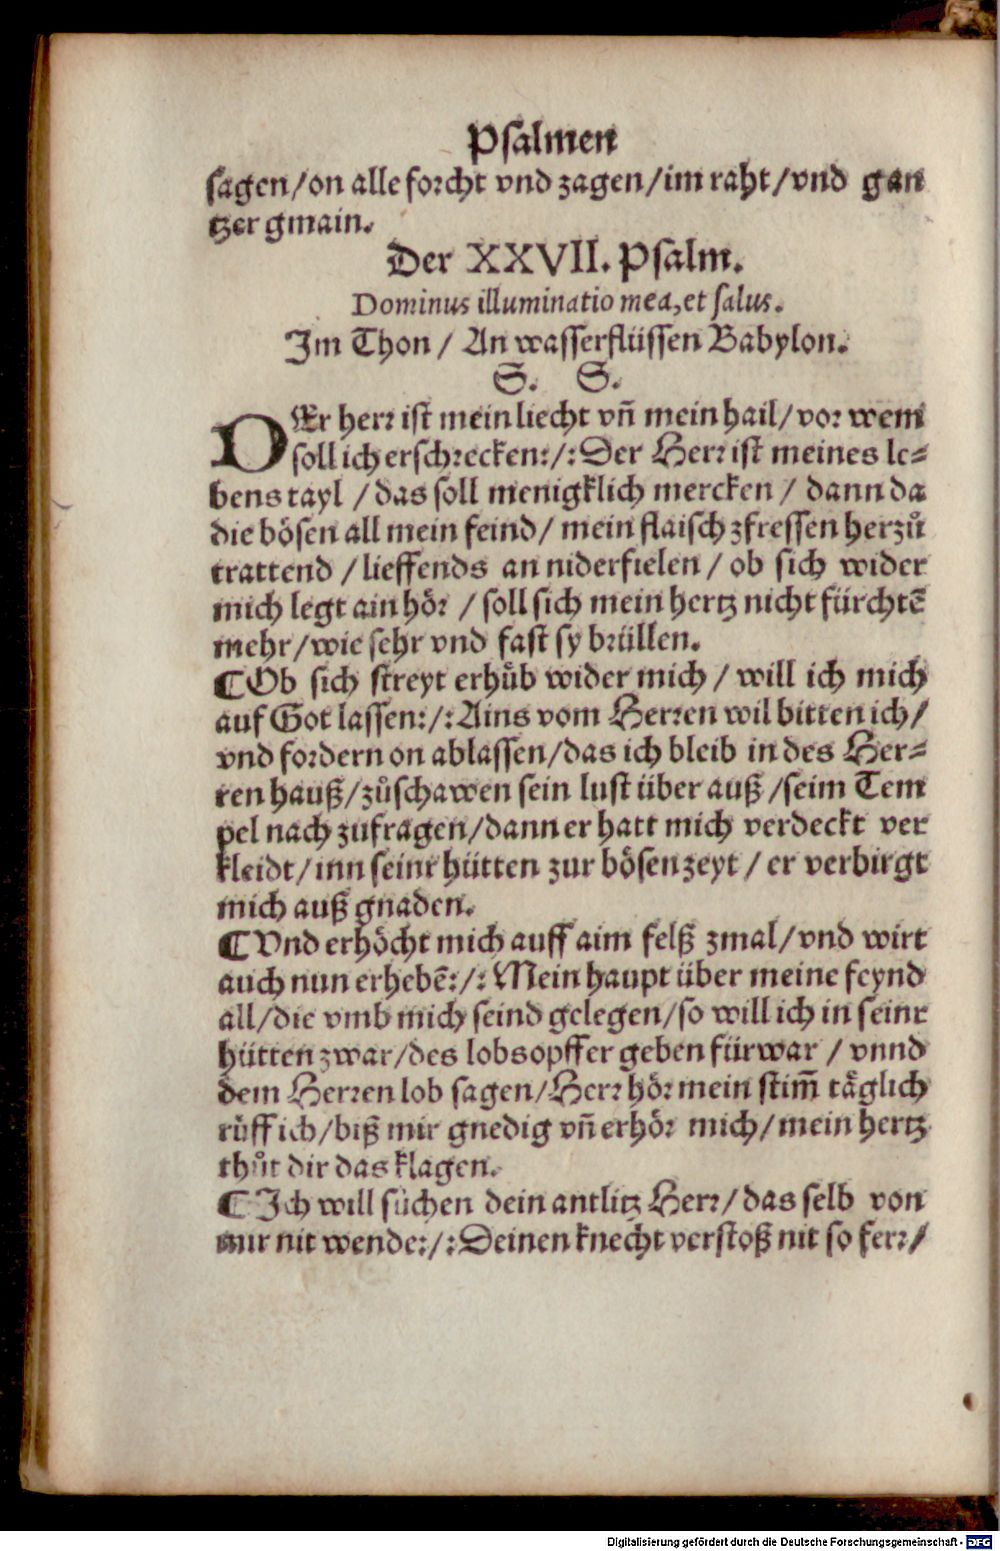 Psalmen
sagen/on alle forcht vnd zagen/im raht/vnd gan
tzer gmain.
Der XXVII. Psalm.
Dominus illuminatio mea, et salus.
Im Thon / An wasserflüssen Babylon.
S. S.
DEr herr ist mein liecht vñ mein hail/vor wem
soll ich erschrecken:/:Der Herr ist meines le⸗
bens tayl /das soll menigklich mercken / dann da
die bösen all mein feind/ mein flaisch zfressen herzů
trattend /lieffends an niderfielen / ob sich wider
mich legt ain hör /soll sich mein hertz nicht fürchtē
mehr/wie sehr vnd fast sy brüllen.
¶Ob sich streyt erhůb wider mich / will ich mich
auf Got lassen:/:Ains vom Herren wil bitten ich/
vnd fordern on ablassen/das ich bleib in des Her⸗
ren hauß/zůschawen sein lust über auß /seim Tem
pel nach zufragen/dann er hatt mich verdeckt ver
kleidt/inn seinr hütten zur bösen zeyt / er verbirgt
mich auß gnaden.
¶Vnd erhöcht mich auff aim felß zmal/vnd wirt
auch nun erhebē:/:Mein haupt über meine feynd
all/die vmb mich seind gelegen/so will ich in seinr
hütten zwar/des lobsopffer geben fürwar / vnnd
dem Herren lob sagen/Herr hör mein stim̄ täglich
růff ich/biß mir gnedig vñ erhör mich/mein hertz
thůt dir das klagen.
¶Ich will sůchen dein antlitz Herr/das selb von
mir nit wende:/:Deinen knecht verstoß nit so ferr/
Digitalisierung gefördert durch die Deutsche Forschungsgemeinschaft - DFG